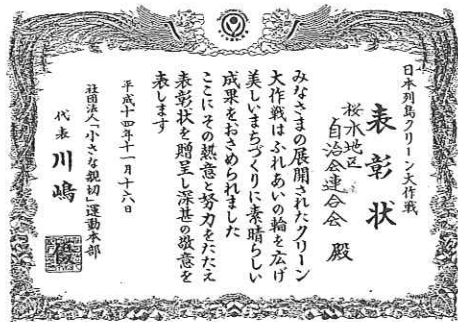 日本列島クリーン大作戦
表彰状
桜水地区
自治会連合会 殿
みなさまの展開されたクリーン
大作戦はふれあいの輪を広げ
美しいまちづくりに素晴らしい
成果をおさめられました
ここにその熱意と努力をたたえ
表彰状を贈呈し深甚の敬意を
表します
平成十四年十一月十六日
社団法人「小さな親切」運動本部
代表 川嶋